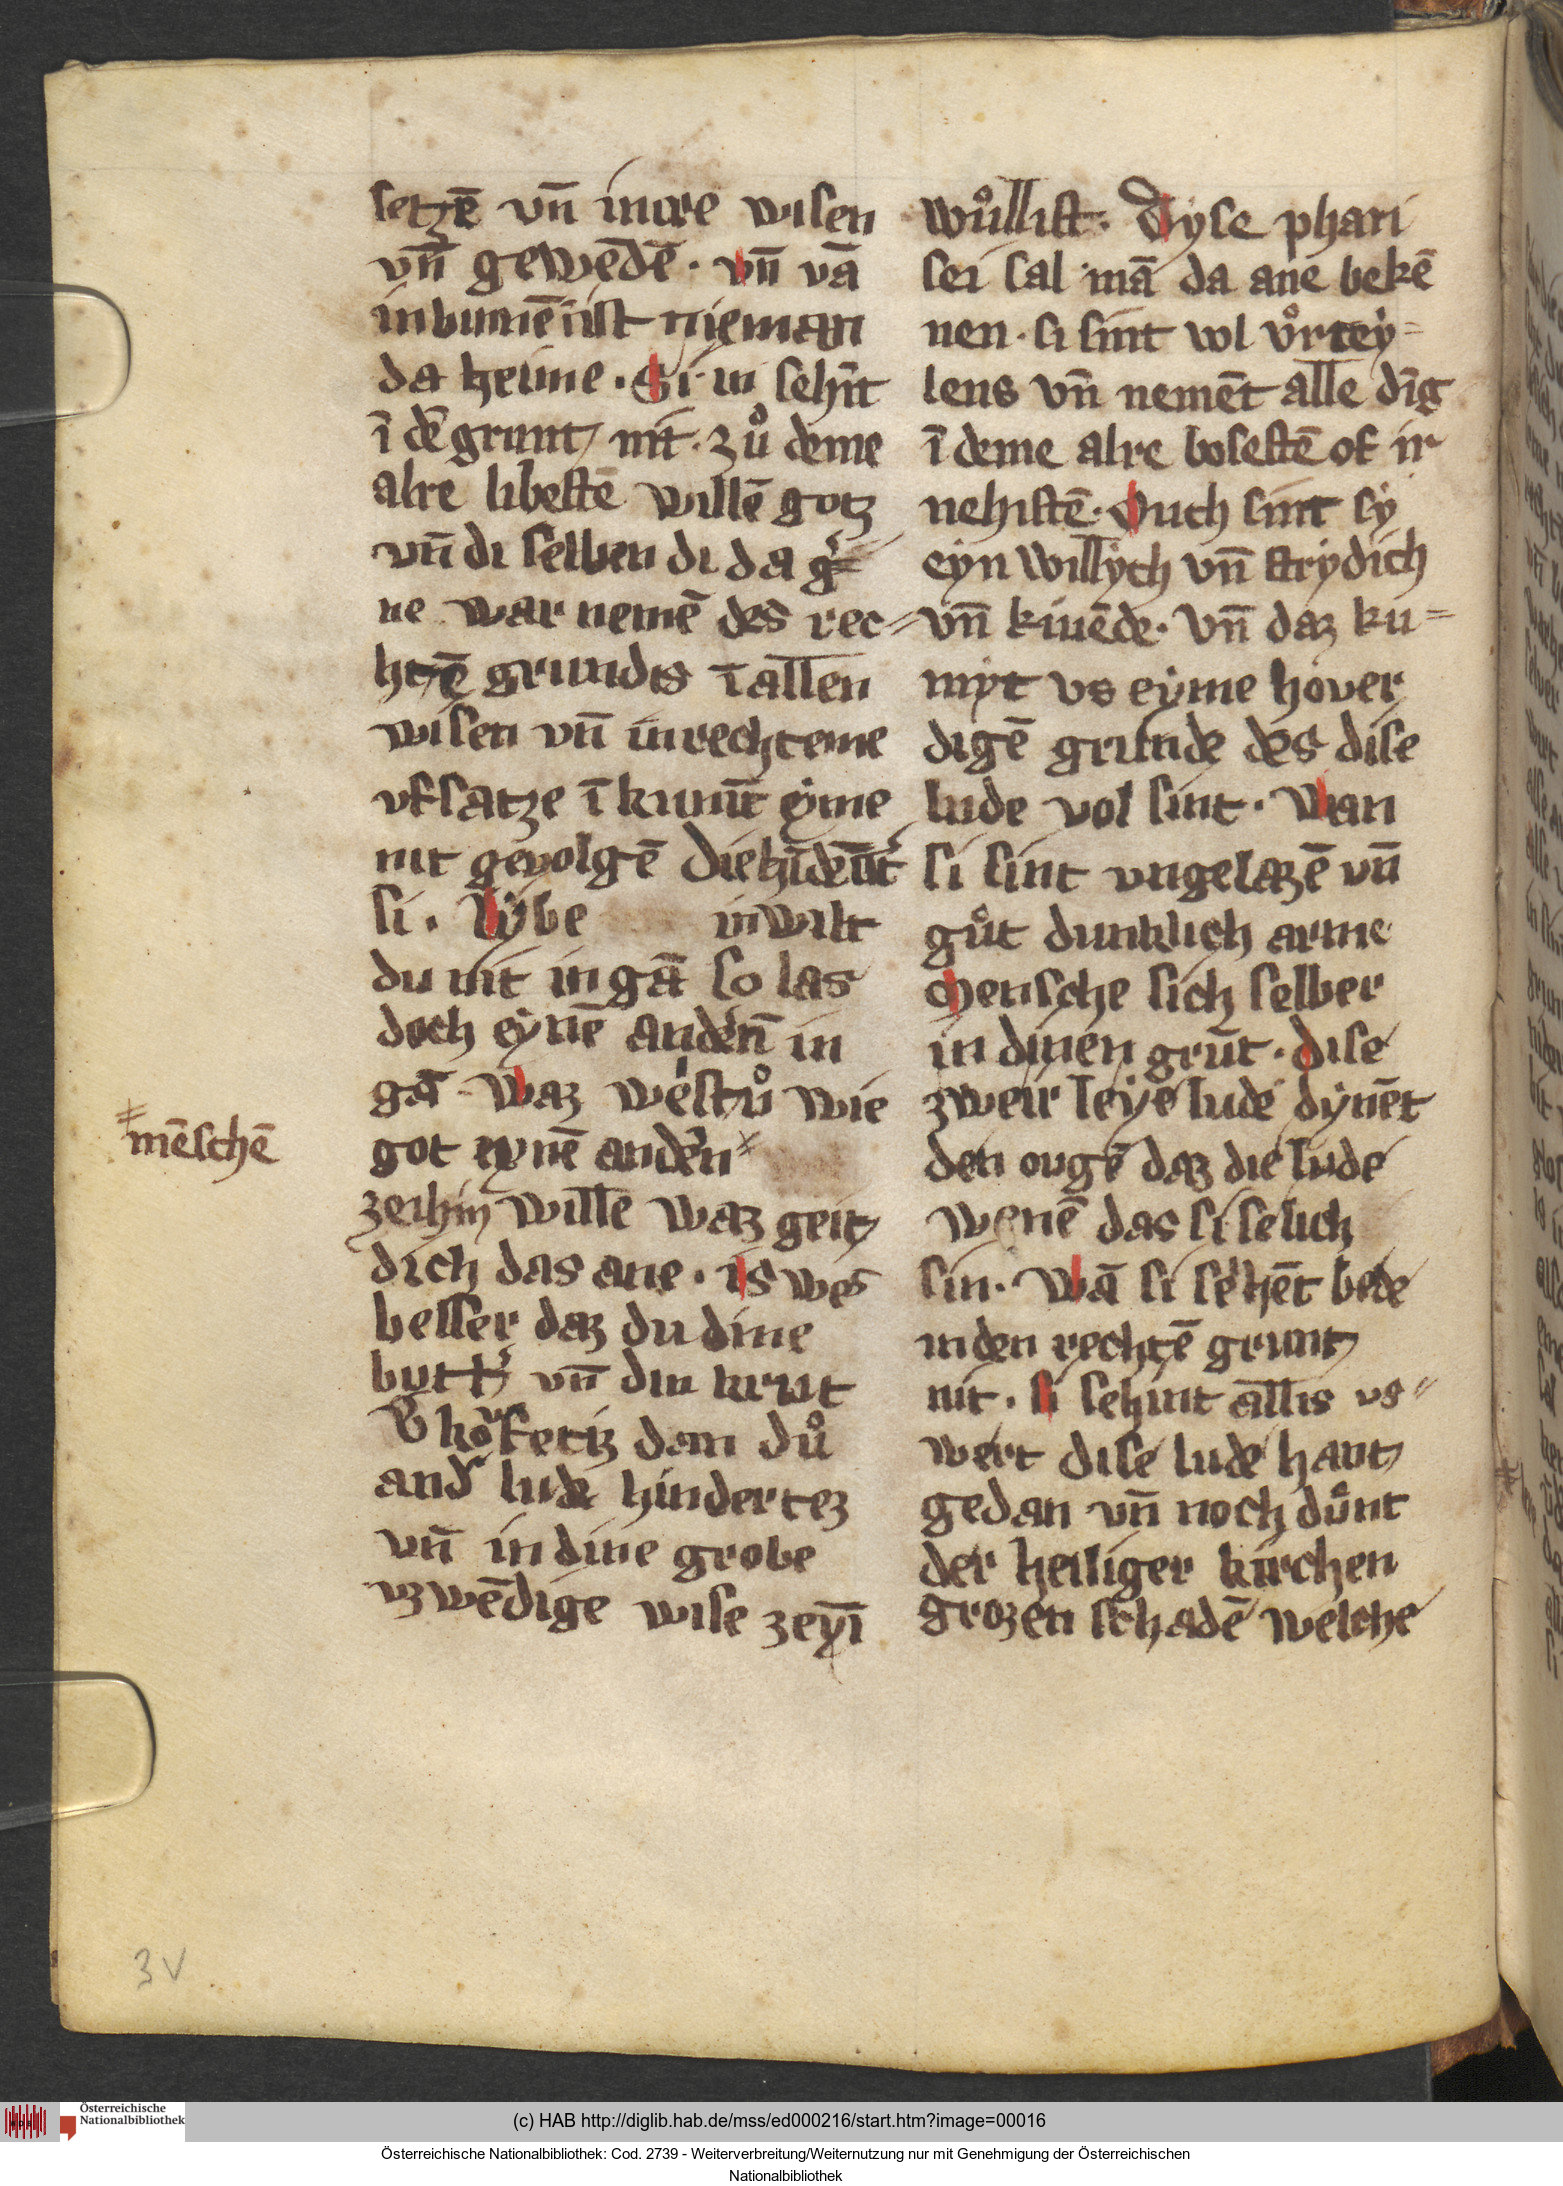 setzē vn̄ in ire wisen
vn̄ gewēdē · vn̄ vā
in binnē ist nieman
da heime · Si in sehn̄t
ī dē grunt nit · zů deme
alre libestē willē gotz
vn̄ di selben di da g̾=
ne war nemē des rec=
htē grundis ī allen
wisen vn̄ in rechteme
vfsatze ī kunn̄t eyme
nit gevolgē
si · Lybe in wilt
du nit in gā so las
doch eynē andern̄ in
gā · Waz westů wie
got eynē andern
mēschē
zeihin wille waz geit
dich das ane · is wes
besser daz du dine
butt̾ vn̄ din krut
dan dů
and̾ lude hindertez
vn̄ in dine grobe
vzwēdige wise zeyī
wůllist · Dyse phari
sei sal mā da ane bekē
nen · si sint vol ůrtey=
lens vn̄ nemēt alle dīg
ī deme alre bosestē of ir
nehistē · Ouch sint sy
eyn willych vn̄ strydich
vn̄ kiuēde · vn̄ daz ku=
myt vs eyme hover
digē grunde des dise
lude vol sint · Wan
si sint vngelazē vn̄
gůt dunklich arme
Mensche sich selber
in dinen grūt · dise
zweir leye lude dynēt
den ougē daz die lude
wenē das si selich
sin · Wā si sehēt bede
in den rechtē grunt
nit · si sehint allis vs=
wert dise lude hant
gedan vn̄ noch důnt
der heiliger kirchen
grozen schadē welche
3v
Österreichische
Nationalbibliothek
(c) HAB http://diglib.hab.de/mss/ed000216/start.htm?image=00016
Österreichische Nationalbibliothek: Cod. 2739 - Weiterverbreitung/Weiternutzung nur mit Genehmigung der Österreichischen
Nationalbibliothek